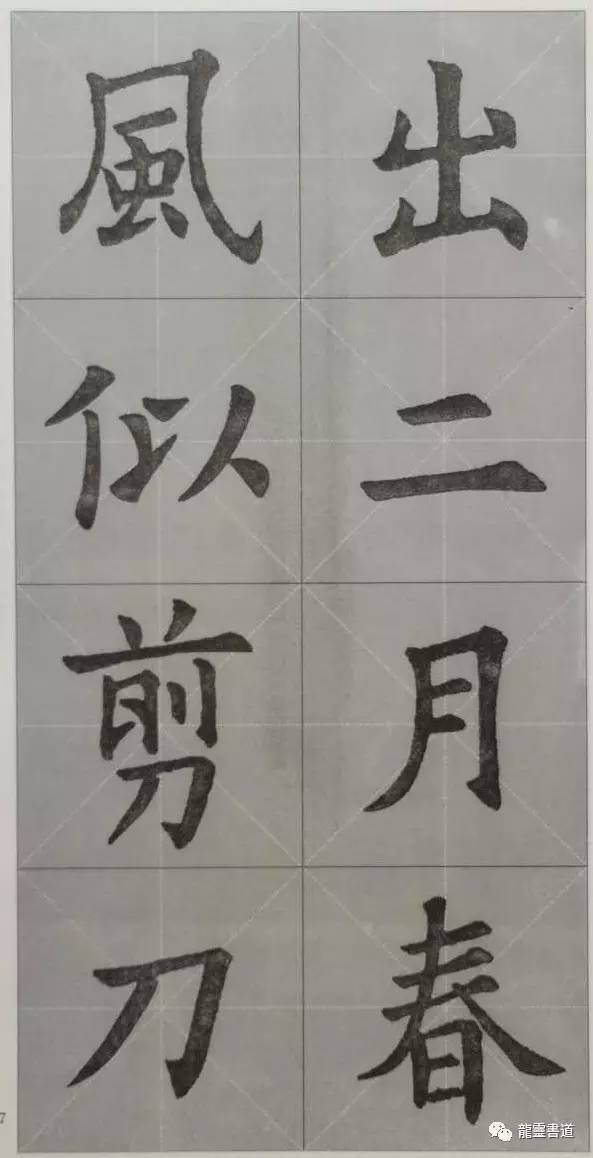 出二月春
風似剪刀
7
龍靈書道